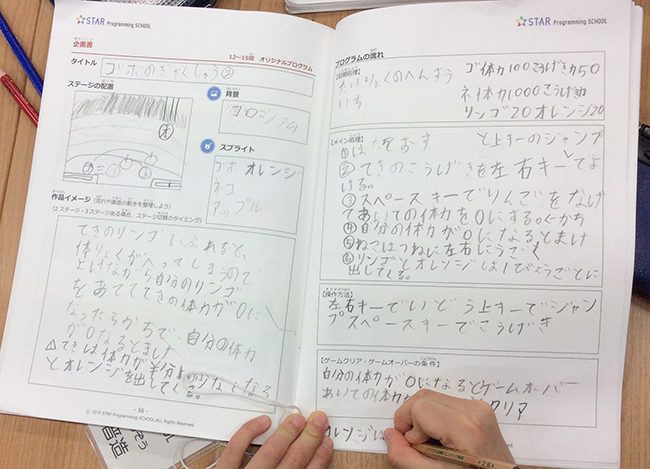 STAR Programming SCHOOL
企画書
12～15回 オリジナルプログラム
タイトル
ゴホのぎゃくしゅう②
ステージの配置
背景
コロシアム
オ
スプライト
ゴホ オレンジ
ネコ
アップル
作品イメージ（流れや画面の動きを整理しよう）
(2ステージ・3ステージある場合、ステージ切替のタイミング)
てきのリンゴにふれると、
体りょくがへってしまうので
よけながら自分のリンゴ
をあててきの体力が0に
なったらかちで、自分の体力
が0なるとまけ
△てきは体力が半分より少なくなる
とオレンジを出してくる。
- 56 -
© 2015 STAR Programming SCHOOL All Rights Reserved.
STAR Programming SCHOOL
プログラムの流れ
【初期処理】
たいりょくのへんすう
いち
ゴ体力100こうげき力50
ネ体力1000こうげき力
リンゴ20オレンジ30
【メイン処理】
①はたをおす と上キーのジャンプ
②てきのこうげきを左右キーでよ
ける。
③スペースキーでりんごをなげ
てあいての体力を0にする。←かち
④自分の体力が0になるとまけ
⑤ねこはつねに左右にうごく
⑥リンゴとオレンジは1びょうごとに
出してくる。
【操作方法】
左右キーでいどう上キーでジャン
プスペースキーでこうげき
【ゲームクリア・ゲームオーバーの条件】
自分の体力が0になるとゲームオーバー
あいての体力が クリア
オレンジは